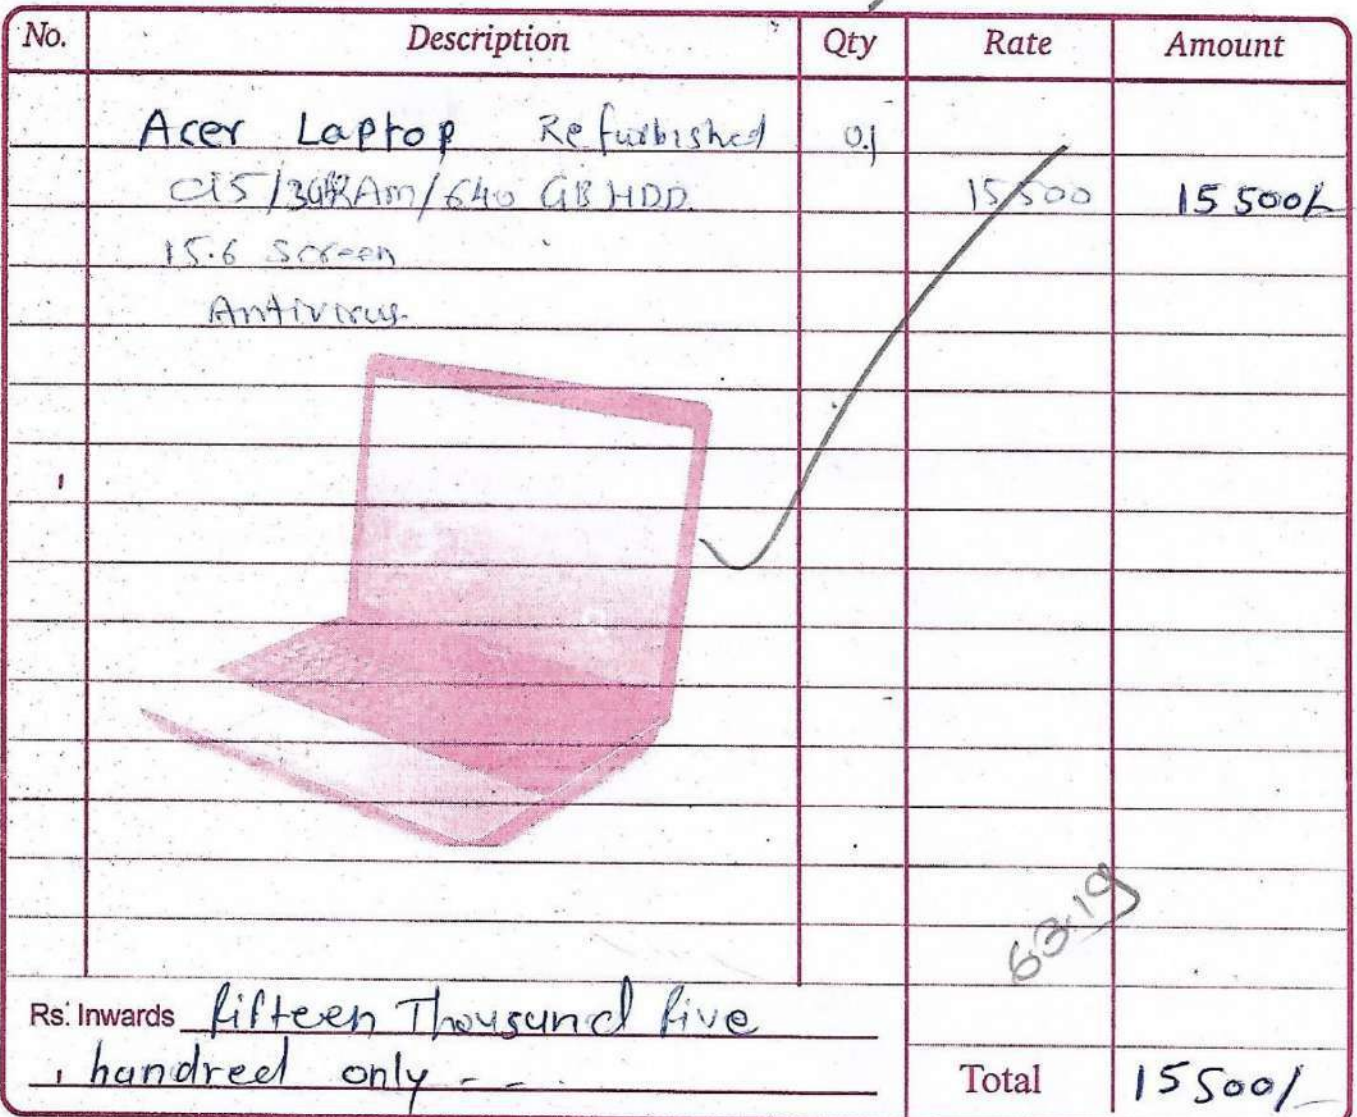 No. Description Qty Rate Amount
Acer Laptop Refurbished 01
Ci5/3GBRAM/640 GB HDD. 15500 15500/-
15.6 Screen
Antivirus.
63.19
Rs. Inwards fifteen Thousand five
handreed only - -
Total 15500/-